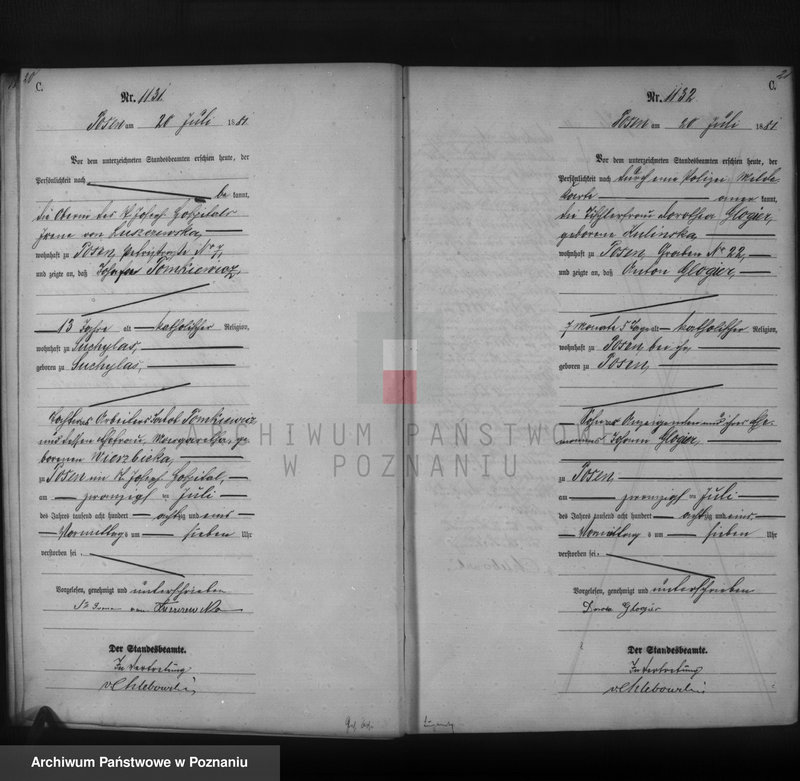 20
C.
Nr. 1131.
Posen am 20 Juli 1881
Vor dem unterzeichneten Standesbeamten erschien heute, der
Persönlichkeit nach
be kannt,
die Oberin des St Josef Hospitals
Irene von Luszczewska,
wohnhaft zu Posen, Petristraße No 7,
und zeigte an, daß Josefa Tomkiewicz,
13 Jahre alt katholischer Religion,
wohnhaft zu Suchylas,
geboren zu Suchylas,
Tochter des Arbeiters Jakob Tomkiewicz
und dessen Ehefrau Margaretha, ge
borenen Wierzbicka,
zu Posen im St Josef Hospital,
am zwanzigsten Juli
des Jahres tausend acht hundert achtzig und eins
Vormittags um sieben Uhr
verstorben sei.
Vorgelesen, genehmigt und unterschrieben
Der Standesbeamte.
In Vertretung
21
C.
Nr. 1132
Posen am 20 Juli 1881
Vor dem unterzeichneten Standesbeamten erschien heute, der
Persönlichkeit nach durch eine Polizei Melde
karte aner kannt,
die Tischlerfrau Dorothea Glogier,
geborene Kulinska,
wohnhaft zu Posen Graben No 22,
und zeigte an, daß Anton Glogier,
7 Monate 5 Tage alt katholischer Religion,
wohnhaft zu Posen, bei ihr,
geboren zu Posen,
Sohn der Anzeigenden und ihres Ehe-
mannes Johann Glogier,
zu Posen,
am zwanzigsten Juli
des Jahres tausend acht hundert achtzig und eins
Vormittags um sieben Uhr
verstorben sei.
Vorgelesen, genehmigt und unterschrieben
Glogier
Der Standesbeamte.
In Vertretung
ARCHIWUM PAŃSTWOWE
W POZNANIU
Archiwum Państwowe w Poznaniu